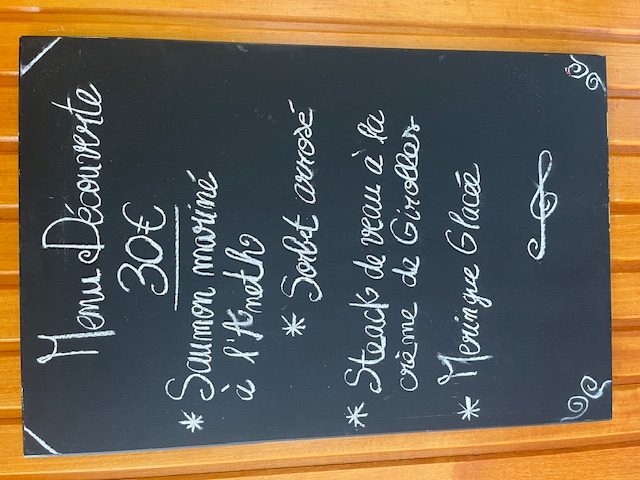 Menu Découverte
30€
* Saumon mariné
à l'Aneth
* Sorbet arrosé
* Steack de veau à la
crème de Girolles
* Meringue Glacée